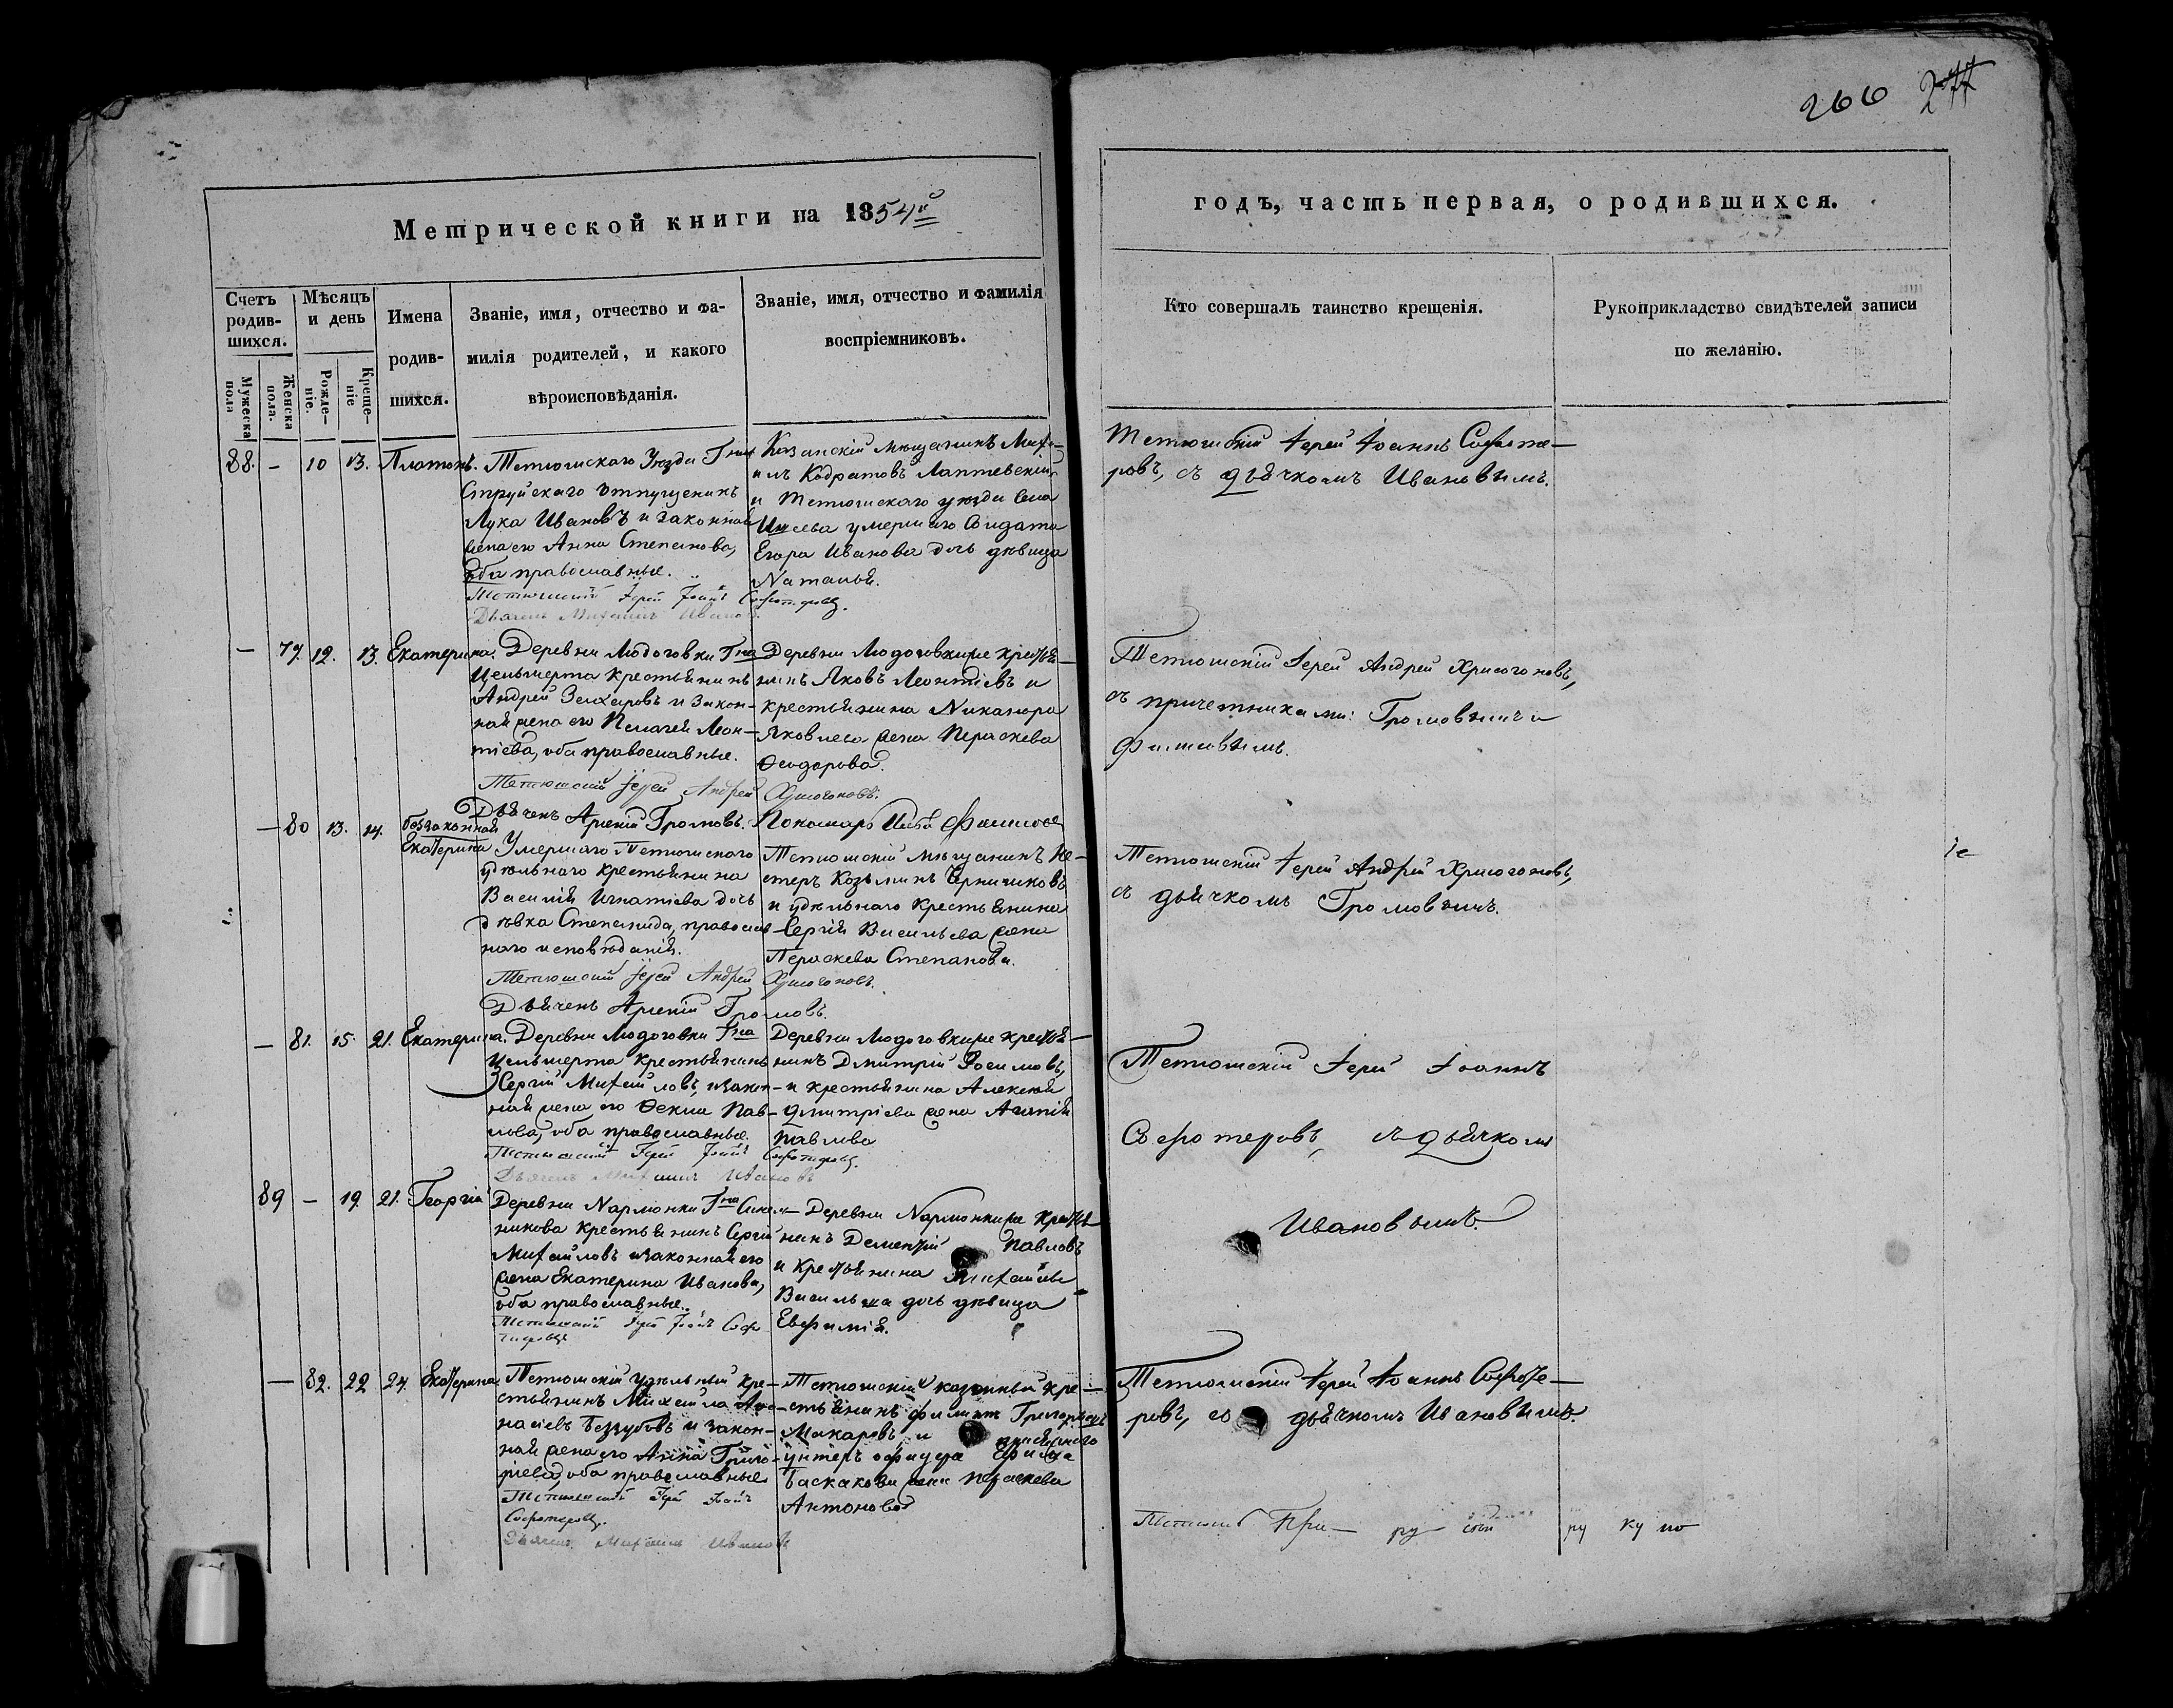 266 277
Метрической книги на 1854й
годъ, часть первая, о родившихся.
Счетъ родив-шихся.
Мужеска пола
Женска пола.
Мѣсяцъ и день
Рожде-ніе.
Креще-ніе
Имена
родив-
шихся.
Званіе, имя, отчество и фа-
милія родителей, и какого
вѣроисповѣданія.
Званіе, имя, отчество и фамилія
воспріемниковъ.
Кто совершалъ таинство крещенія.
Рукоприкладство свидѣтелей записи
по желанію.
88. — 10 13. Платонъ.
Тетюшскаго Уѣзда Гна
Струйскаго отпущеникъ
Лука Ивановъ и законная
жена его Анна Степанова,
оба православные.
Тетюшскій Іерей Іоаннъ Софотеровъ.
Дьячекъ Михаилъ Ивановъ.
Казанскій мѣщанинъ Миха-
илъ Кодратовъ Лаптевскій
и Тетюшскаго уѣзда Села
умершаго Солдата
Егора Иванова дочь дѣвица
Наталья.
Тетюшскій Іерей Іоаннъ Софоте-
ровъ, съ дьячкомъ Ивановымъ.
— 79. 12. 13. Екатерина.
Деревни Людоговки Гна
Цельмерта крестьянинъ
Андрей Захаровъ и закон-
ная жена его Пелагея Леон-
тіева, оба православные.
Тетюшскій Іерей Андрей Хрисогоновъ.
Дьячекъ Арсеній Громовъ. Пономарь
Деревни Людоговки же крестья-
нинъ Яковъ Леонтіевъ и
крестьянина Никанора
Яковлева жена Параскева
Ѳеодорова.
Тетюшскій Іерей Андрей Хрисогоновъ,
съ причетниками: Громовымъ и
— 80 13. 14. беззаконная
Екатерина
Умершаго Тетюшскаго
удѣльнаго крестьянина
Василія Игнатіева дочь
дѣвка Степанида, православ-
наго исповѣданія.
Тетюшскій Іерей Андрей Хрисогоновъ.
Дьячекъ Арсеній Громовъ.
Тетюшскій мѣщанинъ Не-
стеръ Козьминъ
и удѣльнаго крестьянина
Сергія Васильева жена
Параскева Степанова.
Тетюшскій Іерей Андрей Хрисогоновъ,
съ дьячкомъ Громовымъ.
— 81. 15. 21. Екатерина.
Деревни Людоговки Гна
Цельмерта крестьянинъ
Сергій Михайловъ, и закон-
ная жена его Ѳекла Пав-
лова, оба православные.
Тетюшскій Іерей Іоаннъ Софотеровъ.
Дьячекъ Михаилъ Ивановъ
Деревни Людоговки же крестья-
нинъ Дмитрій
и крестьянина Алексѣя
Дмитріева жена
Павлова
Тетюшскій Іерей Іоаннъ
Софотеровъ, съ дьячкомъ
Ивановымъ.
89 — 19. 21. Георгій
Деревни Нармонки Гна
крестьянинъ Сергій
Михайловъ и законная его
жена Екатерина Иванова,
оба православные.
Тетюшскій Іерей Іоаннъ Софо-
теровъ
Деревни Нармонки же крестья-
нинъ Дементій Павловъ
и крестьянина Михайлы
Васильева дочь дѣвица
Евфимія.
— 82. 22 24. Екатерина
Тетюшскій удѣльный кре-
стьянинъ Михайла Афа-
насіевъ Беззубовъ и закон-
ная жена его Анна Григо-
рьева, оба православные
Тетюшскій Іерей Іоаннъ
Софотеровъ.
Дьячекъ Михаилъ Ивановъ
Тетюшскій казенный кре-
стьянинъ Филиппъ Григорьевъ
Макаровъ и
унтеръ офицера
Баскакова жена Параскева
Антонова
Тетюшскій Іерей Іоаннъ Софоте-
ровъ, со дьячкомъ Ивановымъ.